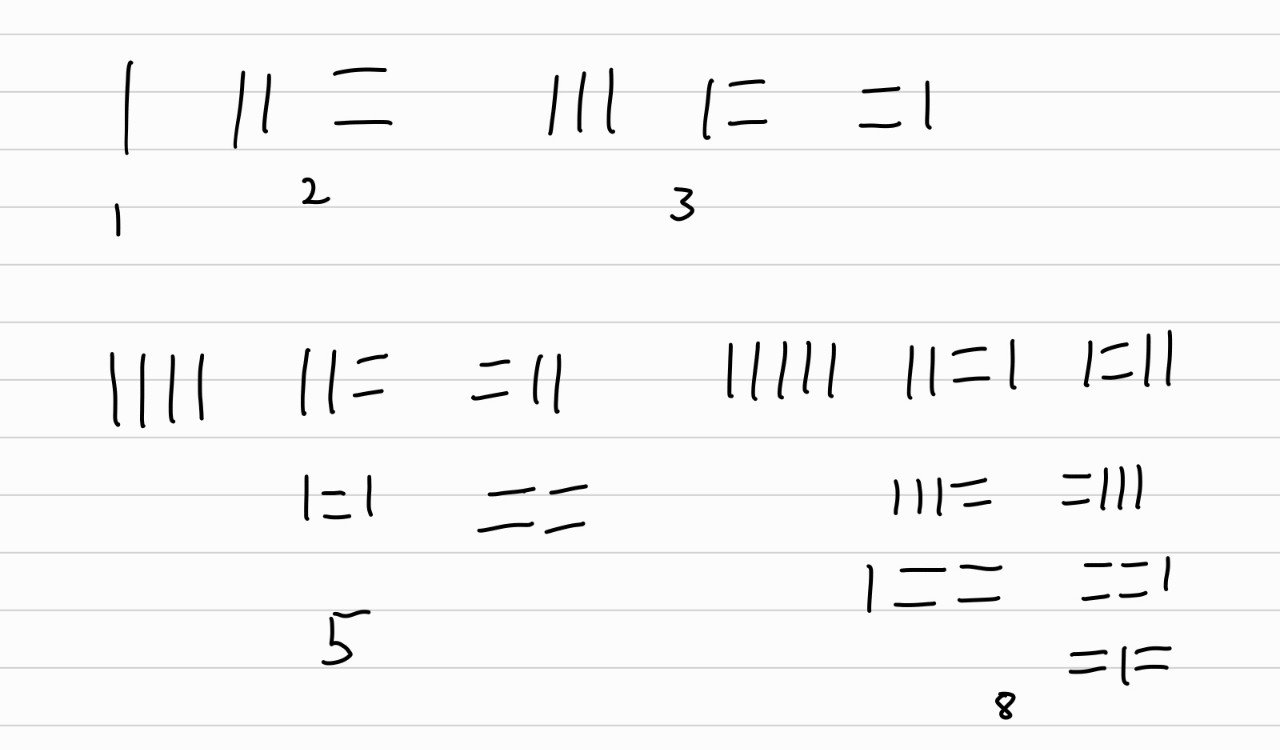 | || = ||| |= =|
1 2 3
|||| ||= =|| ||||| ||=| |=||
|=| == |||= =|||
|== ==|
5 =|=
8